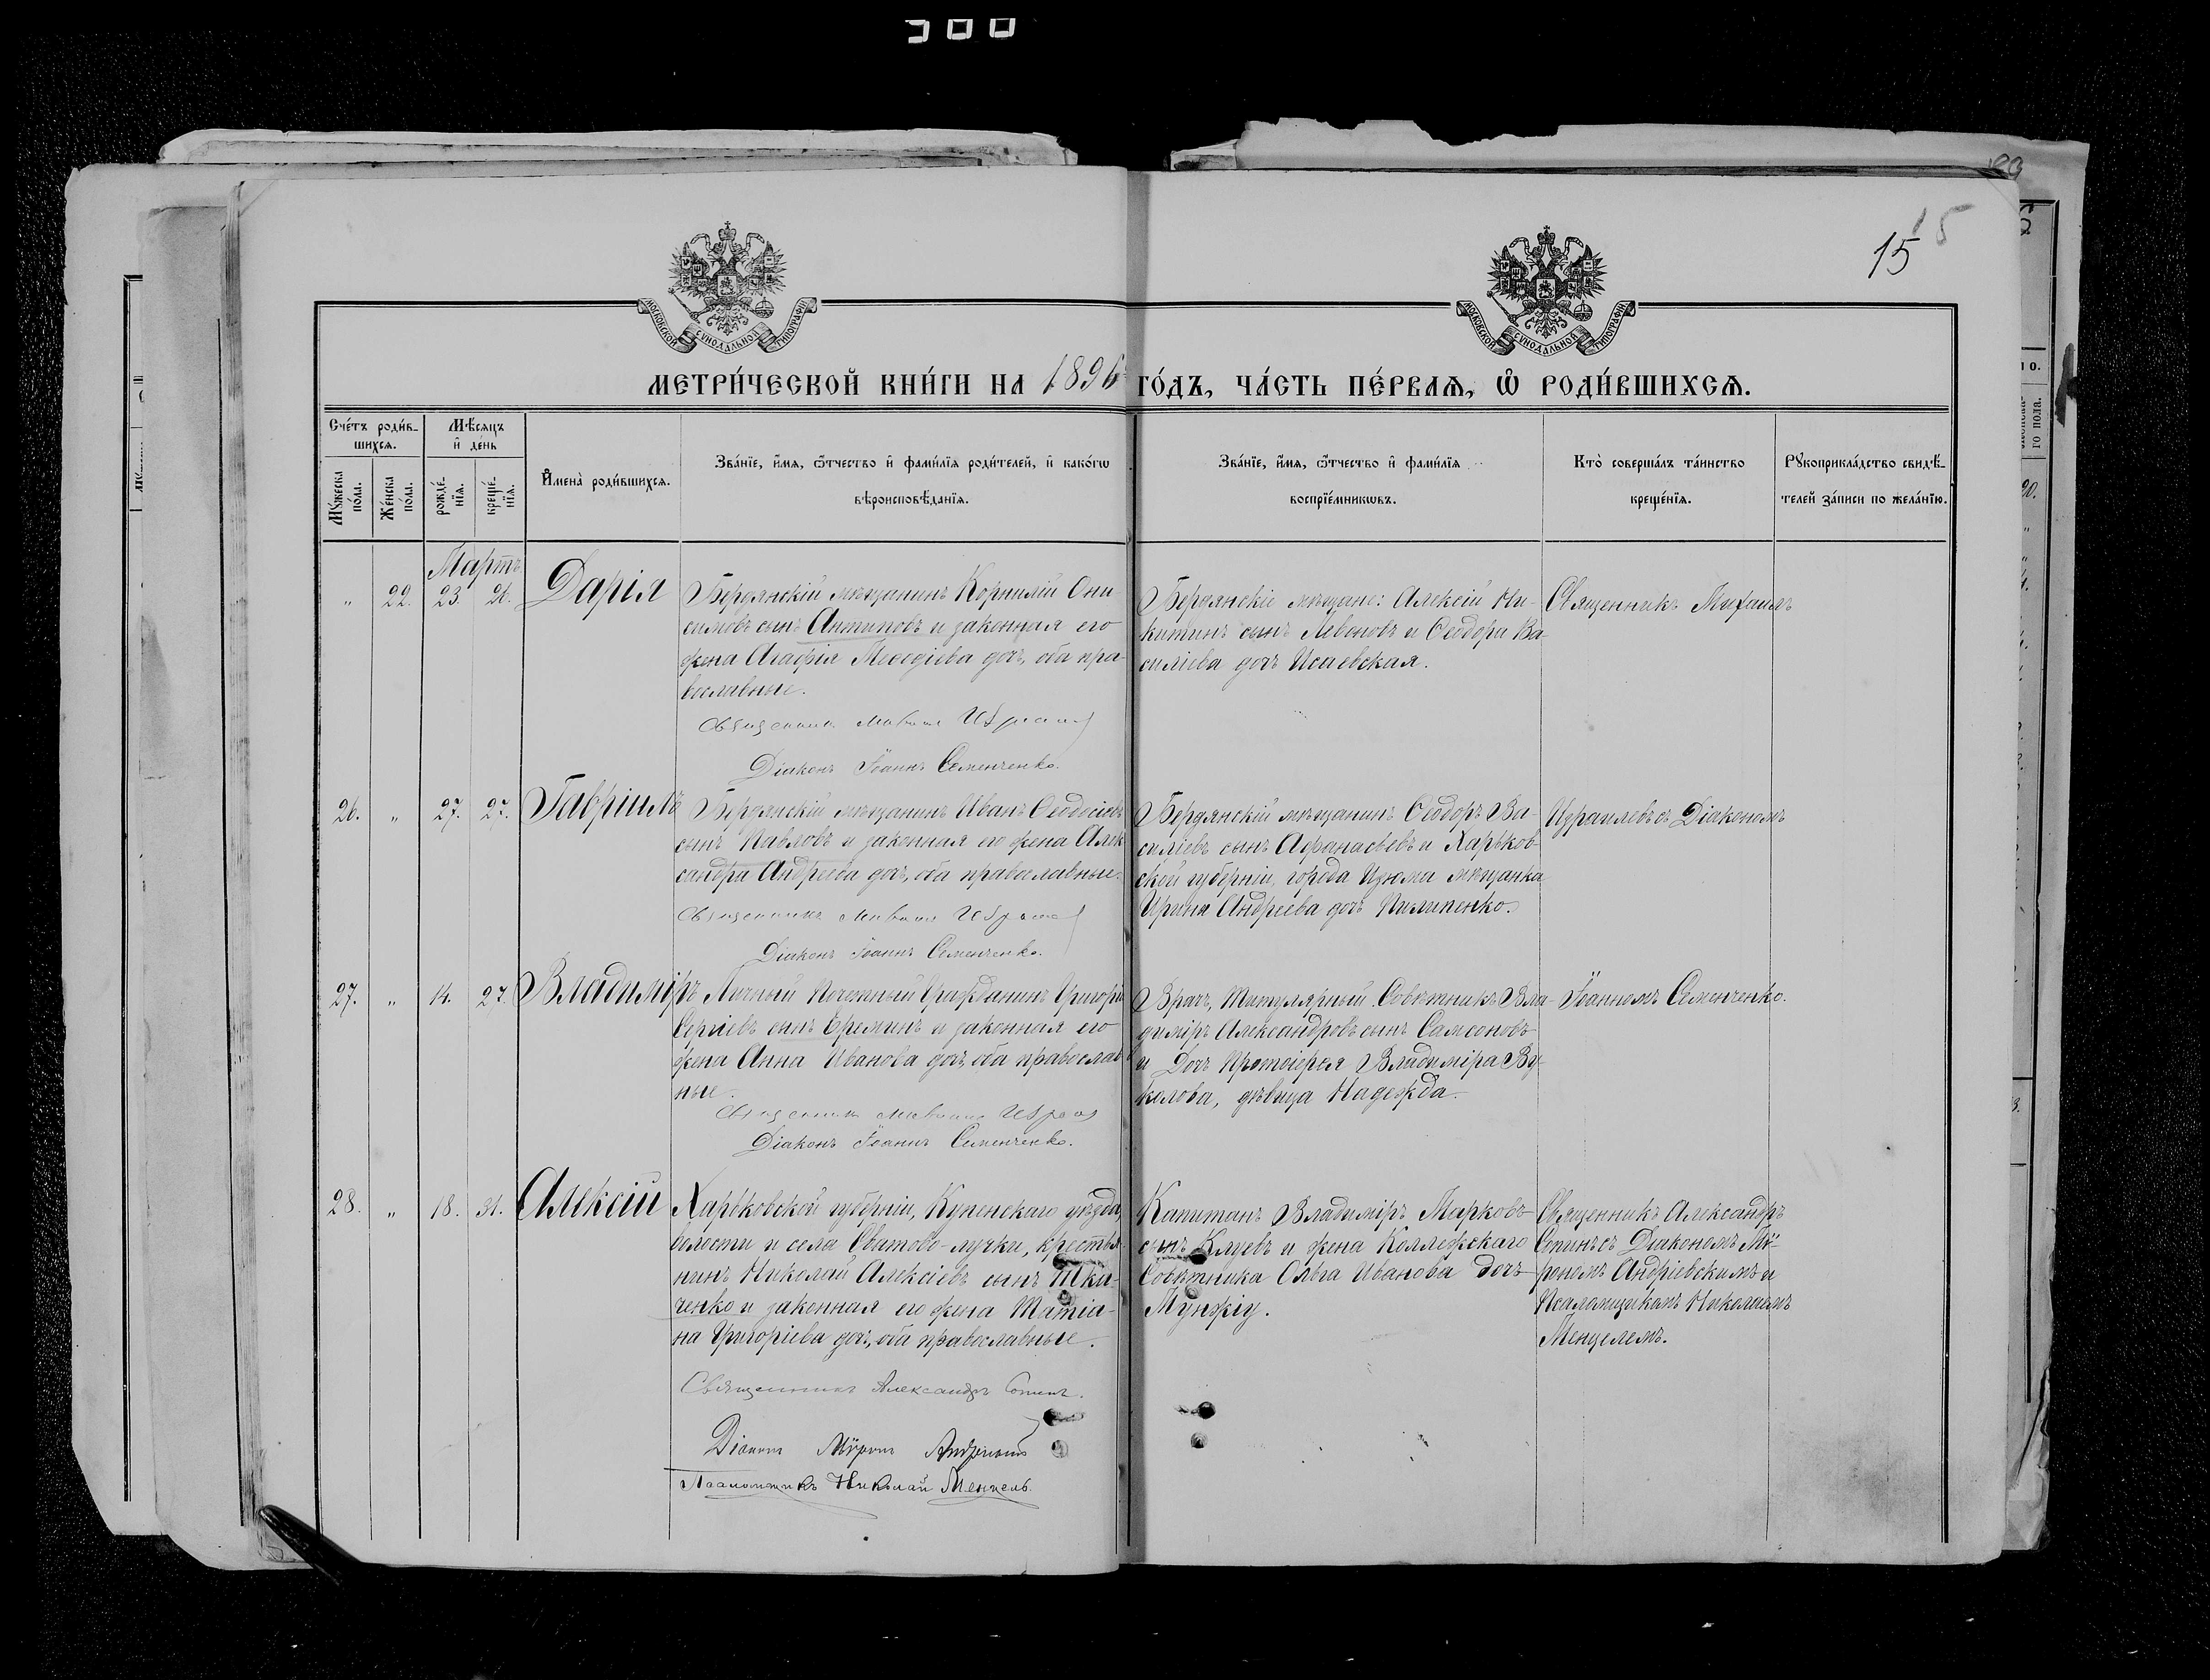 300
15
15
МОСКОВСКОЙ СѴНОДАЛЬНОЙ ТИПОГРАФІИ
МОСКОВСКОЙ СѴНОДАЛЬНОЙ ТИПОГРАФІИ
МЕТРИ́ЧЕСКОЙ КНИ́ГИ НА 1896 ГО́ДЪ, ЧА́СТЬ ПЕ́РВАѦ, Ѽ РОДИ́ВШИХСѦ.
Сче́тъ роди́в-
шихсѧ.
Мꙋ́жеска по́ла.
Же́нска по́ла.
Мѣ́сѧцъ
и҆ де́нь
рожде́-
нїѧ.
креще́-
нїѧ.
И҆мена̀ роди́вшихсѧ.
Зва́нїе, и҆́мѧ, ѻ҆́тчество и҆ фами́лїѧ роди́телей, и҆ како́гѡ
вѣроисповѣ́данїѧ.
Зва́нїе, и҆́мѧ, ѻ҆́тчество и҆ фами́лїѧ
воспрїе́мникѡвъ.
Кто̀ соверша́лъ та́инство
креще́нїѧ.
Рꙋкоприкла́дство свидѣ́-
телей за́писи по жела́нїю.
Мартъ
" 22. 23. 26. Дарія
Бердянскій мѣщанинъ Корнилій Они-
симовъ сынъ Антиповъ и законная его
жена Агафія Меѳодіева дочь, оба пра-
вославные.
Священникъ Михаилъ
Діаконъ Іоаннъ Семенченко.
Бердянскіе мѣщане: Алексій Ни-
китинъ сынъ Левоновъ и Ѳеодора Ва-
силіева дочь Исаевская.
Священникъ Михаилъ
26. " 27. 27. Гавріилъ
Бердянскій мѣщанинъ Иванъ Ѳеодосіевъ
сынъ Павловъ и законная его жена Алек-
сандра Андреева дочь, оба православные.
Священникъ Михаилъ
Діаконъ Іоаннъ Семенченко.
Бердянскій мѣщанинъ Ѳеодоръ Ва-
силіевъ сынъ Аѳанасьевъ и Харьков-
ской губерніи, города Изюма мѣщанка
Ирина Андреева дочь Пилипенко.
Израилевъ съ Діакономъ
27. " 14. 27. Владиміръ
Личный Почетный Гражданинъ Григорій
Сергіевъ сынъ Ереминъ и законная его
жена Анна Иванова дочь, оба православ-
ные.
Священникъ Михаилъ
Діаконъ Іоаннъ Семенченко.
Врачъ, Титулярный Совѣтникъ Вла-
диміръ Александровъ сынъ Самсоновъ
и Дочь Протоіерея Владиміра Ву-
колова, дѣвица Надежда.
Іоанномъ Семенченко.
28. " 18. 31. Алексій
Харьковской губерніи, Купенскаго уѣзда,
волости и села Сватово-лучки, крестья-
нинъ Николай Алексіевъ сынъ Тка-
ченко и законная его жена Татіа-
на Григоріева дочь, оба православные.
Священникъ Александръ Сопинъ.
Діаконъ Мѵронъ
Псаломщикъ Николай Менцель.
Капитанъ Владиміръ Марковъ
сынъ Клуевъ и жена Коллежскаго
Совѣтника Ольга Иванова дочь
Мунжіу.
Священникъ Александръ
Сопинъ съ Діакономъ Мѵ-
рономъ Андріевскимъ и
Псаломщикомъ Николаемъ
Менцелемъ.